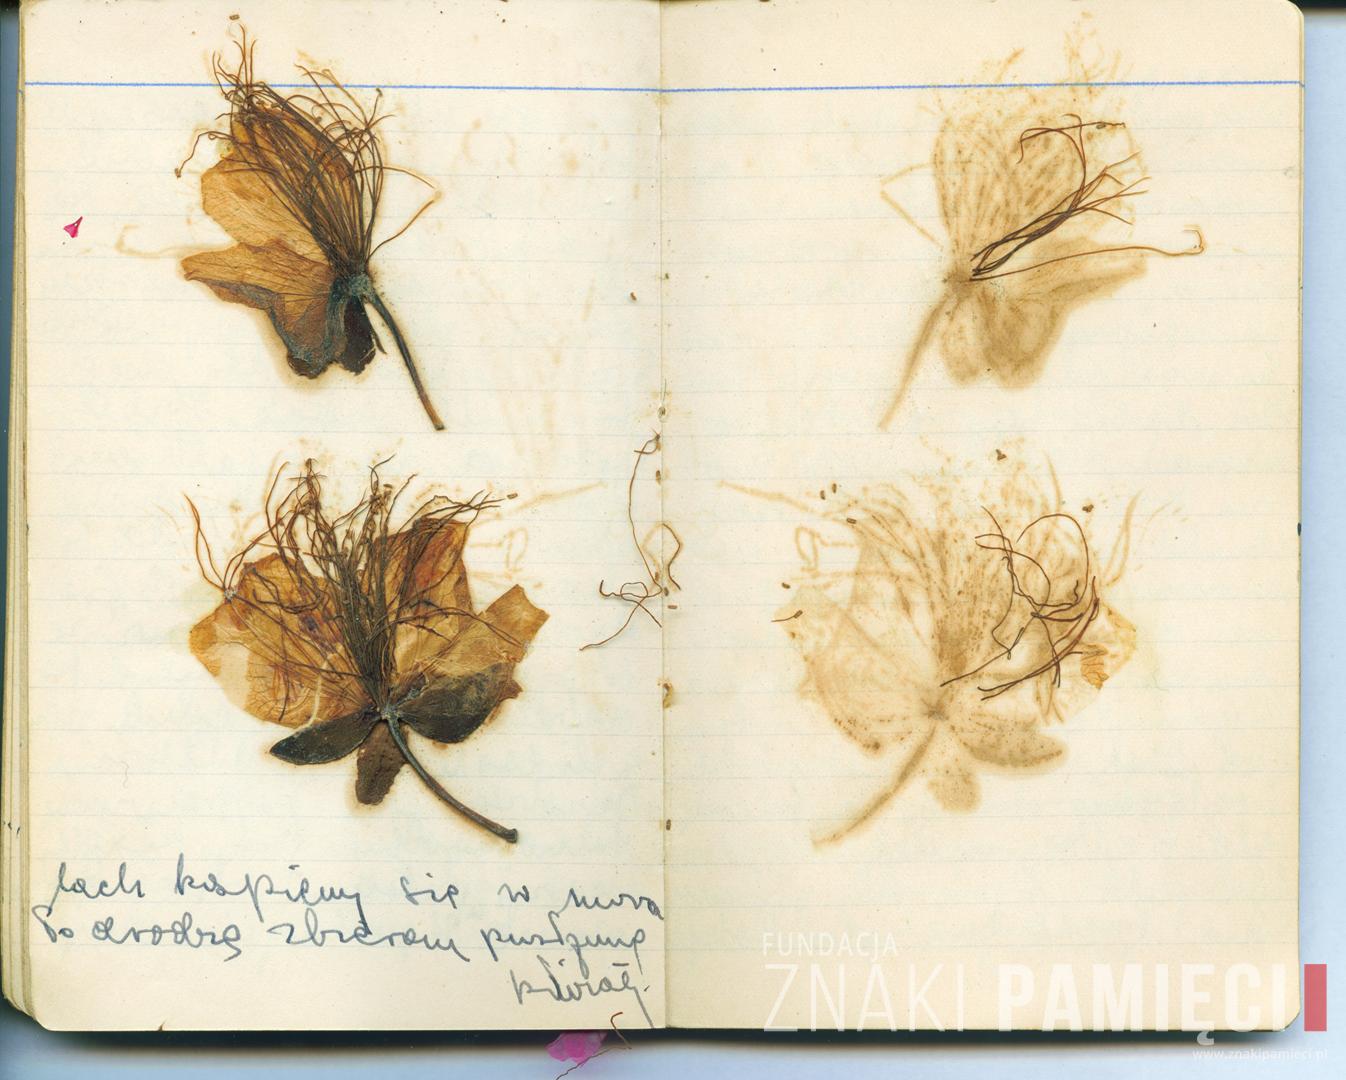 lach kąpiemy się w morzu
Po drodze zbieram pustynne
kwiaty.
FUNDACJA
ZNAKI PAMIĘCI
www.znakipamieci.pl